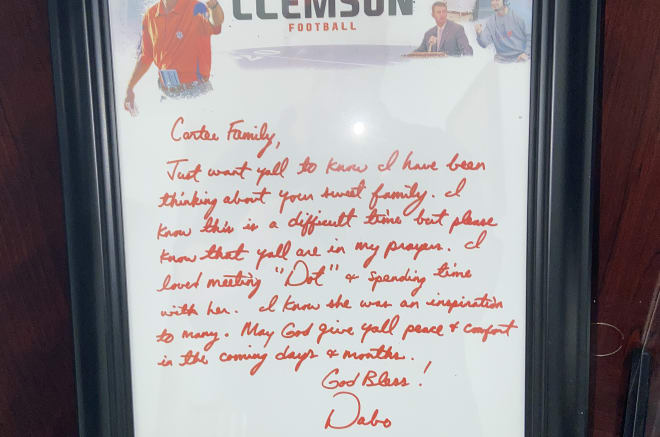 CLEMSON
FOOTBALL
Cartee Family,
Just want yall to know I have been
thinking about your sweet family. I
know this is a difficult time but please
know that yall are in my prayers. I
loved meeting "Dot" & spending time
with her. I know she was an inspiration
to many. May God give yall peace & comfort
in the coming days & months.
God Bless!
Dabo